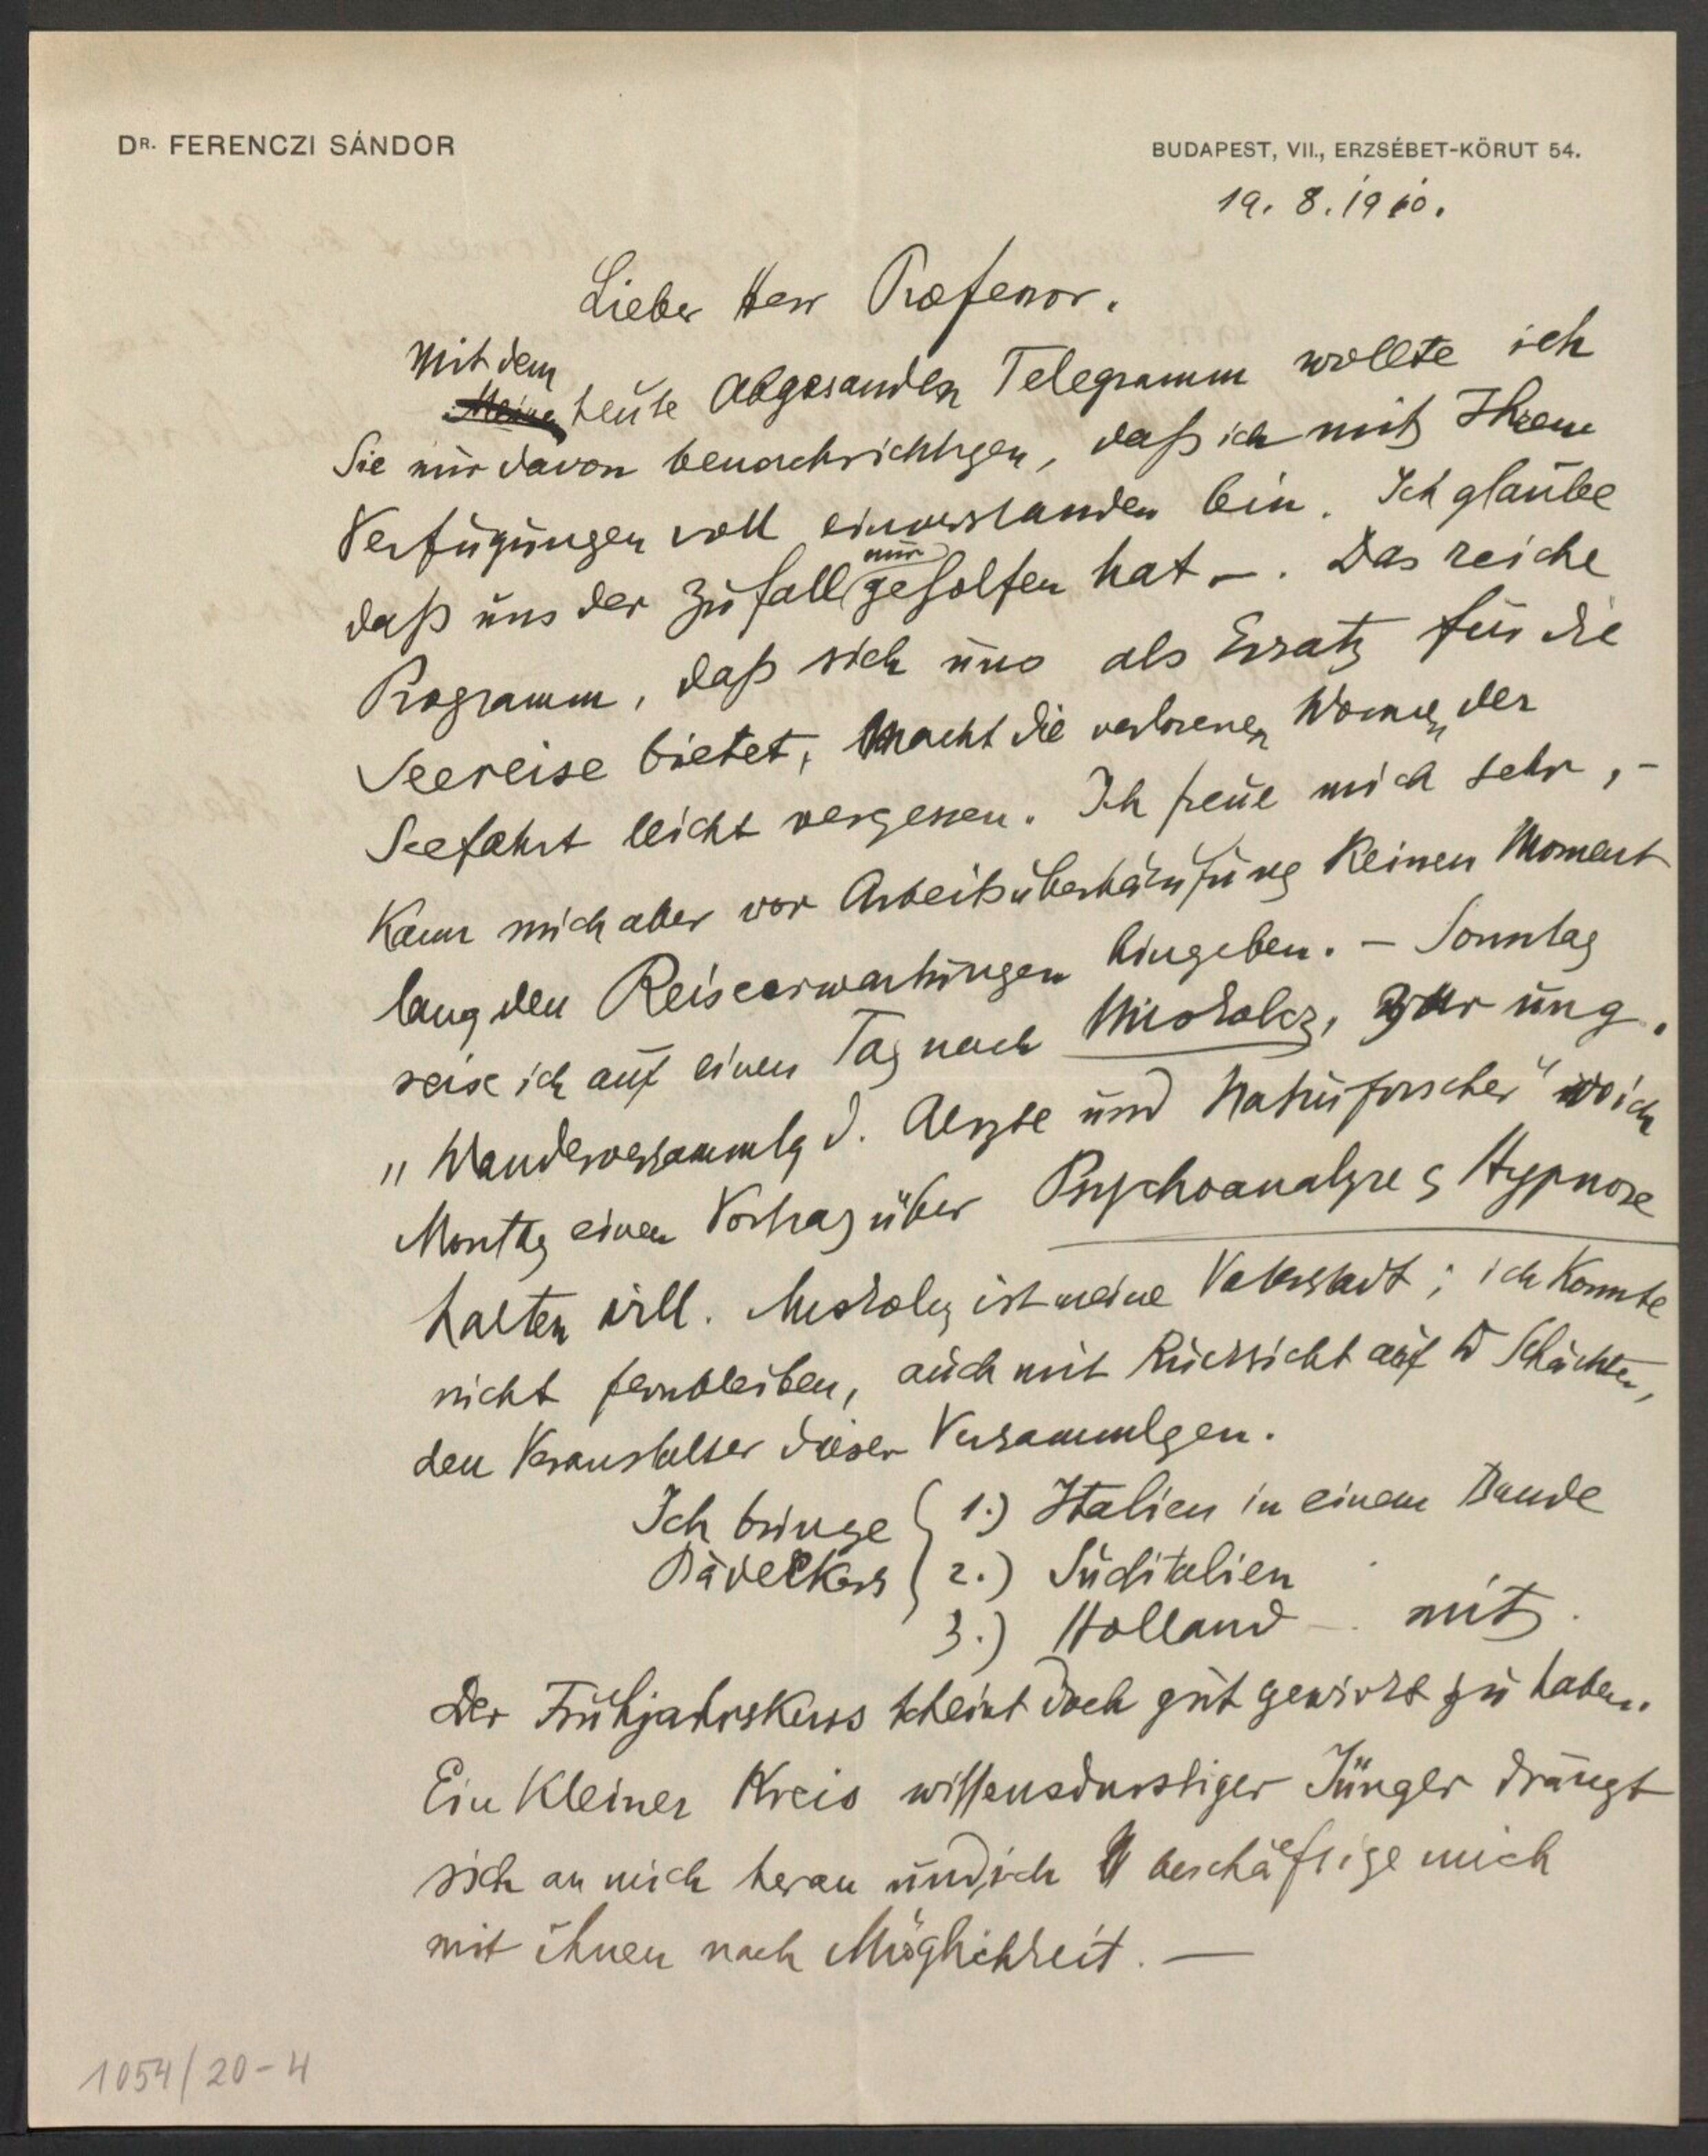 DR. FERENCZI SÁNDOR
BUDAPEST, VII., ERZSÉBET-KÖRUT 54.
19. 8. 1910.
Lieber Herr Professor.
Mit dem
heute abgesanden Telegramm wollte ich
Sie nur davon benachrichtigen, daß ich mit Ihrem
Verfügungen voll einverstanden bin. Ich glaube
daß uns der Zufall nur geholfen hat –. Das reiche
Programm, daß sich uns als Ersatz für die
Seereise bietet, macht die verlorenen Wonnen der
Seefahrt leicht vergessen. Ich freue mich sehr, –
kann mich aber vor Arbeitsüberhäufung keinen Moment
lang den Reiseerwartungen hingeben. – Sonntag
reise ich auf einen Tag nach Miskolcz, zur ung.
„Wanderversammlg d. Aerzte und Naturforscher" wo ich
Montag einen Vortrag über Psychoanalyse & Hypnose
halten will. Miskolcz ist meine Vaterstadt; ich konnte
nicht fernbleiben, auch mit Rücksicht auf Schächter,
den Veranstalter dieser Versammlgen.
Ich bringe { 1.) Italien in einem Bande
Bädekers 2.) Süditalien
3.) Holland – mit.
Der Frühjahrskurs scheint doch gut gewirkt zu haben.
Ein kleiner Kreis wissensdurstiger Jünger drängt
sich an mich heran und ich beschäftige mich
mit ihnen nach Möglichkeit. —
1054/20-4